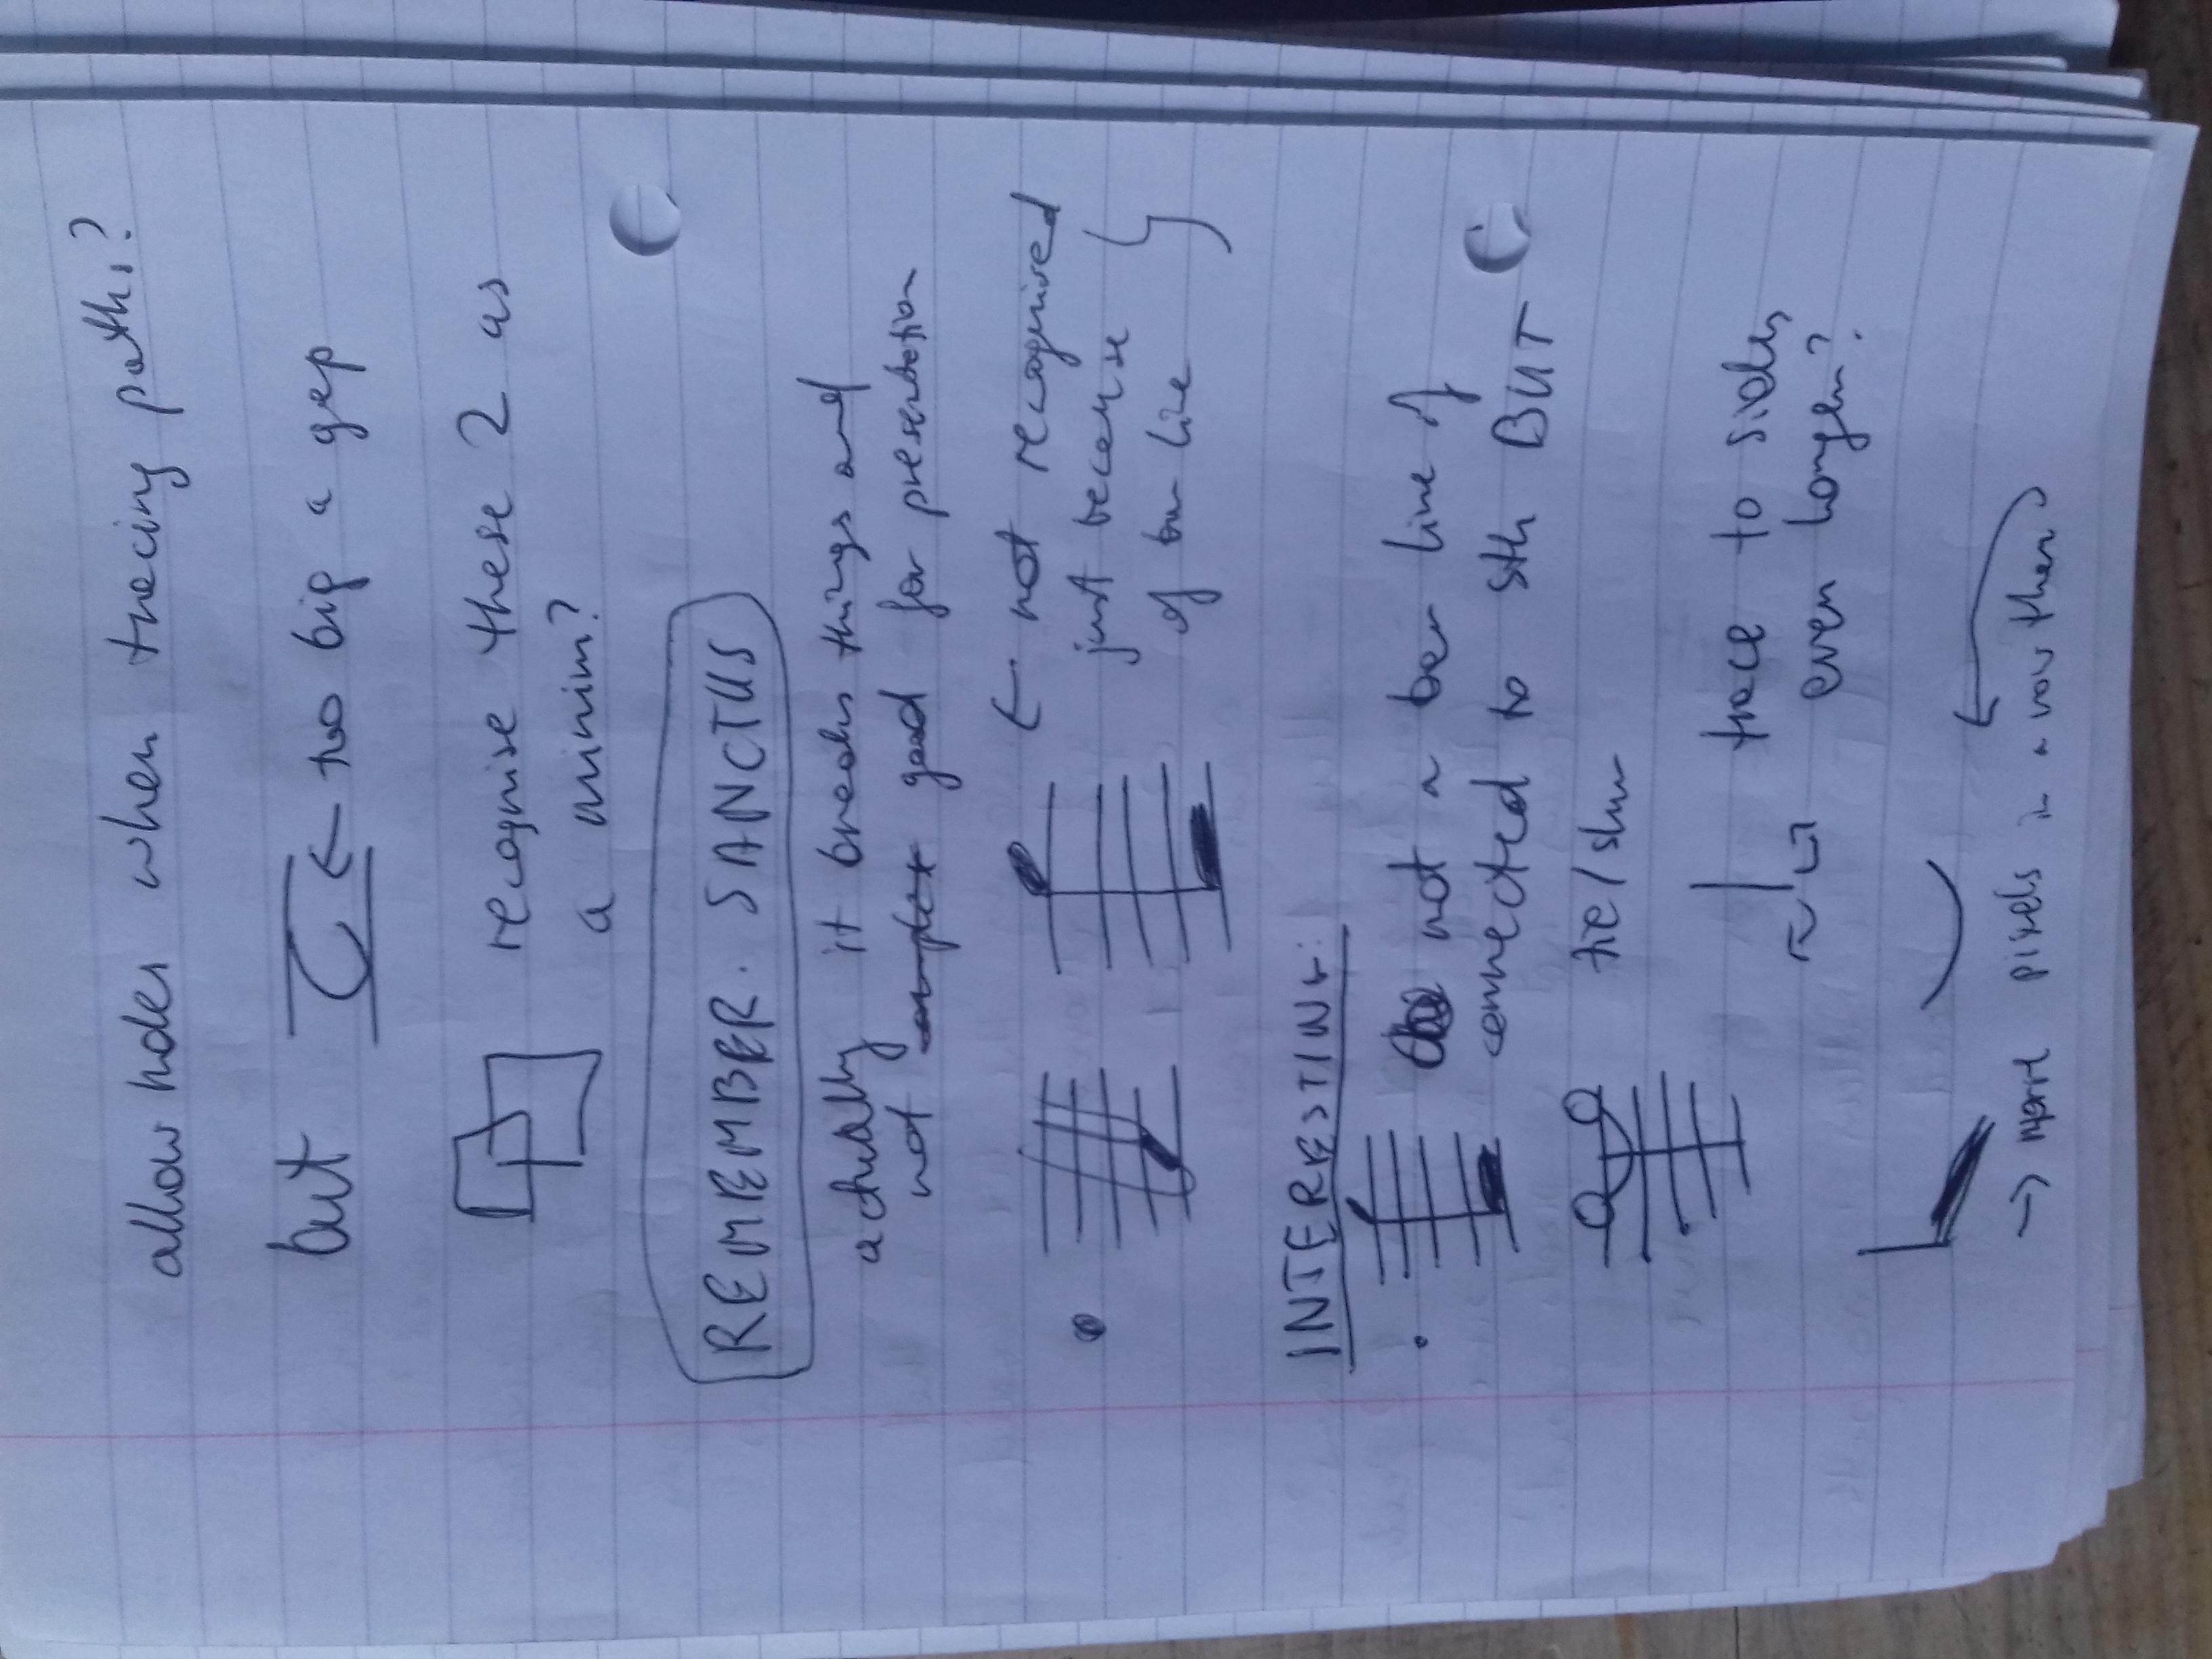 allow holes when tracing paths?
but ← too big a gap
recognise these 2 as
a minim?
REMEMBER. SANCTUS
actually it breaks things and
not good for presentation
← not recognised
just because
of bar line
INTERESTING:
not a bar line if
connected to sth BUT
tie/slur
trace to sides
even longer?
→ more pixels in a row than